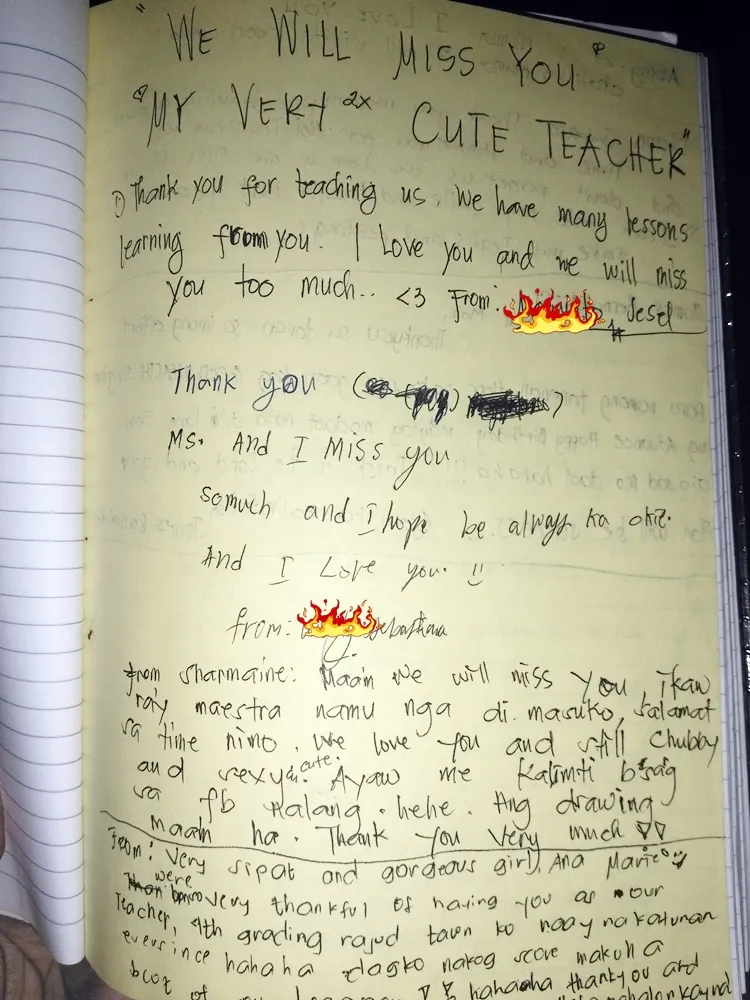 "WE WILL MISS YOU"
"MY VERY 2x CUTE TEACHER"
① Thank you for teaching us. We have many lessons
learning from you. I Love you and we will miss
you too much.. <3 From: Jesel
Thank you
Ms. And I Miss you
somuch and I hope be always ka okie.
And I Love you.
from:
from sharmaine: Maam We will miss you, ikaw
ray maestra namu nga di masuko, salamat
sa time nimo. We love you and still Chubby
and sexy & cute. Ayaw me kalimti bisag
sa fb nalang. hehe. Ang drawing
maam ha. Thank you very much
From: Very sipat and gorgeous girl, Ana Marie
were very thankful of having you as our
Teacher, 4th grading rajud tawn ko naay nakatunan
eversince hahaha dagko nakog score makuha
bcoz of hahaha thankyou and